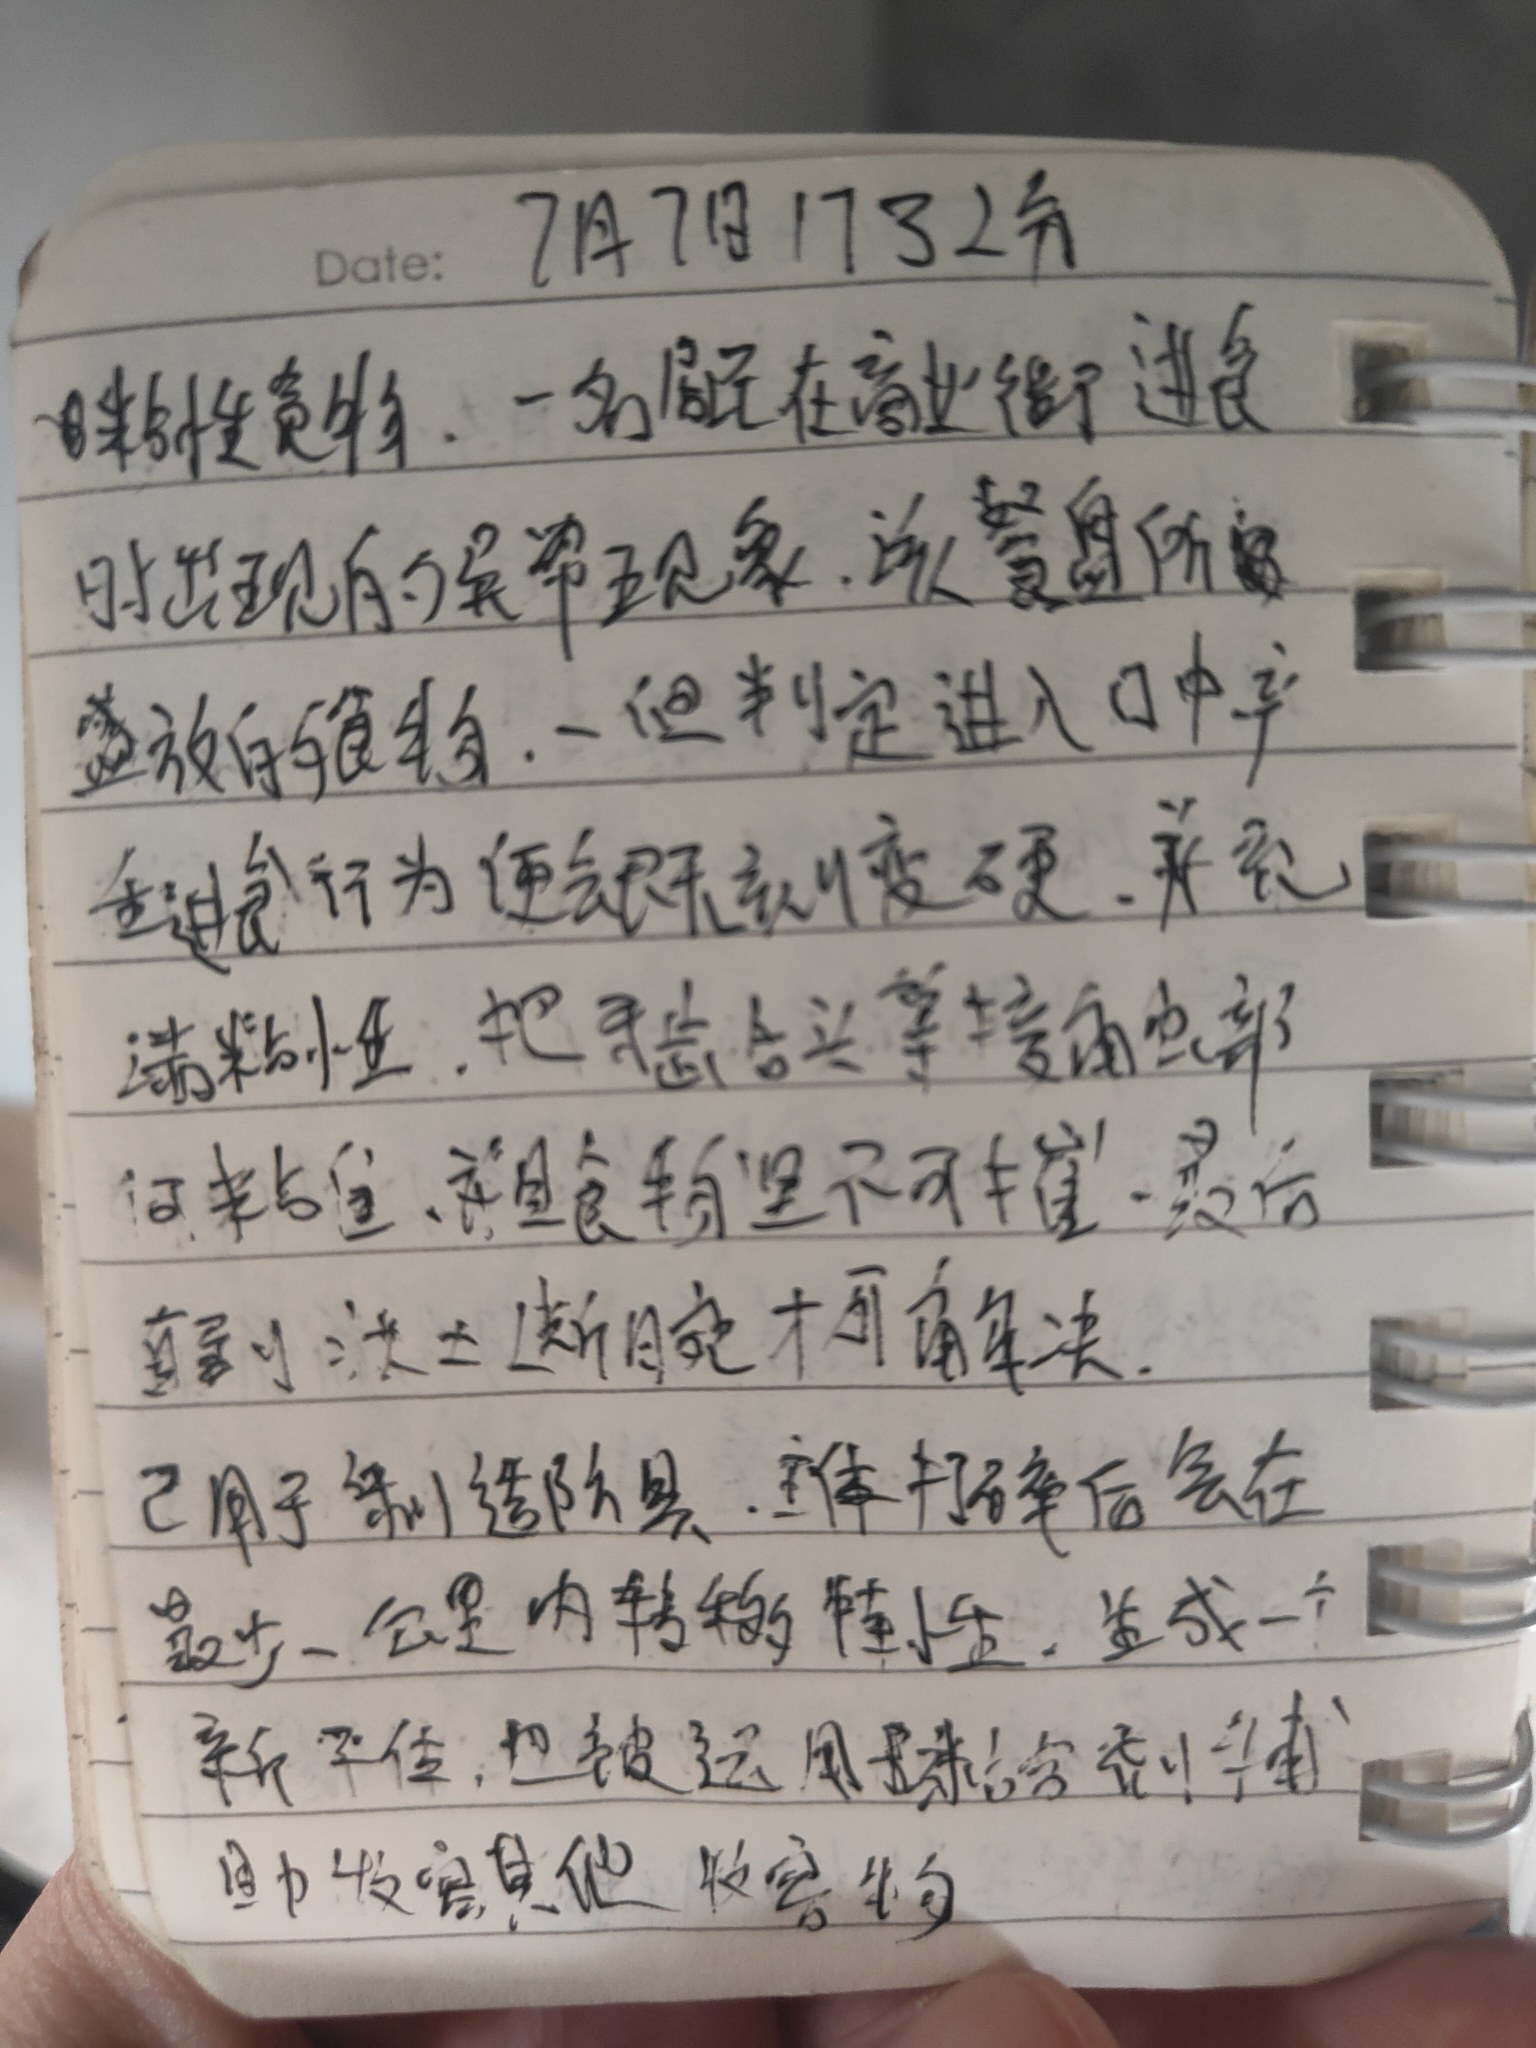 Date: 7月7日1732分
粘性食物.一名居民在商业街进食
时出现的异常现象.该餐盘所
盛放的食物.一但判定进入口中产
生进食行为便会即刻变硬.并充
满粘性.把牙齿舌头等接触部
位粘住.并且食物坚不可摧.最后
直到法士断腕才可解决.
已用于制造防具.主体打碎后会在
最少一公里内转移特性.生成一个
新单位.也被运用 辅
助收容其他收容物